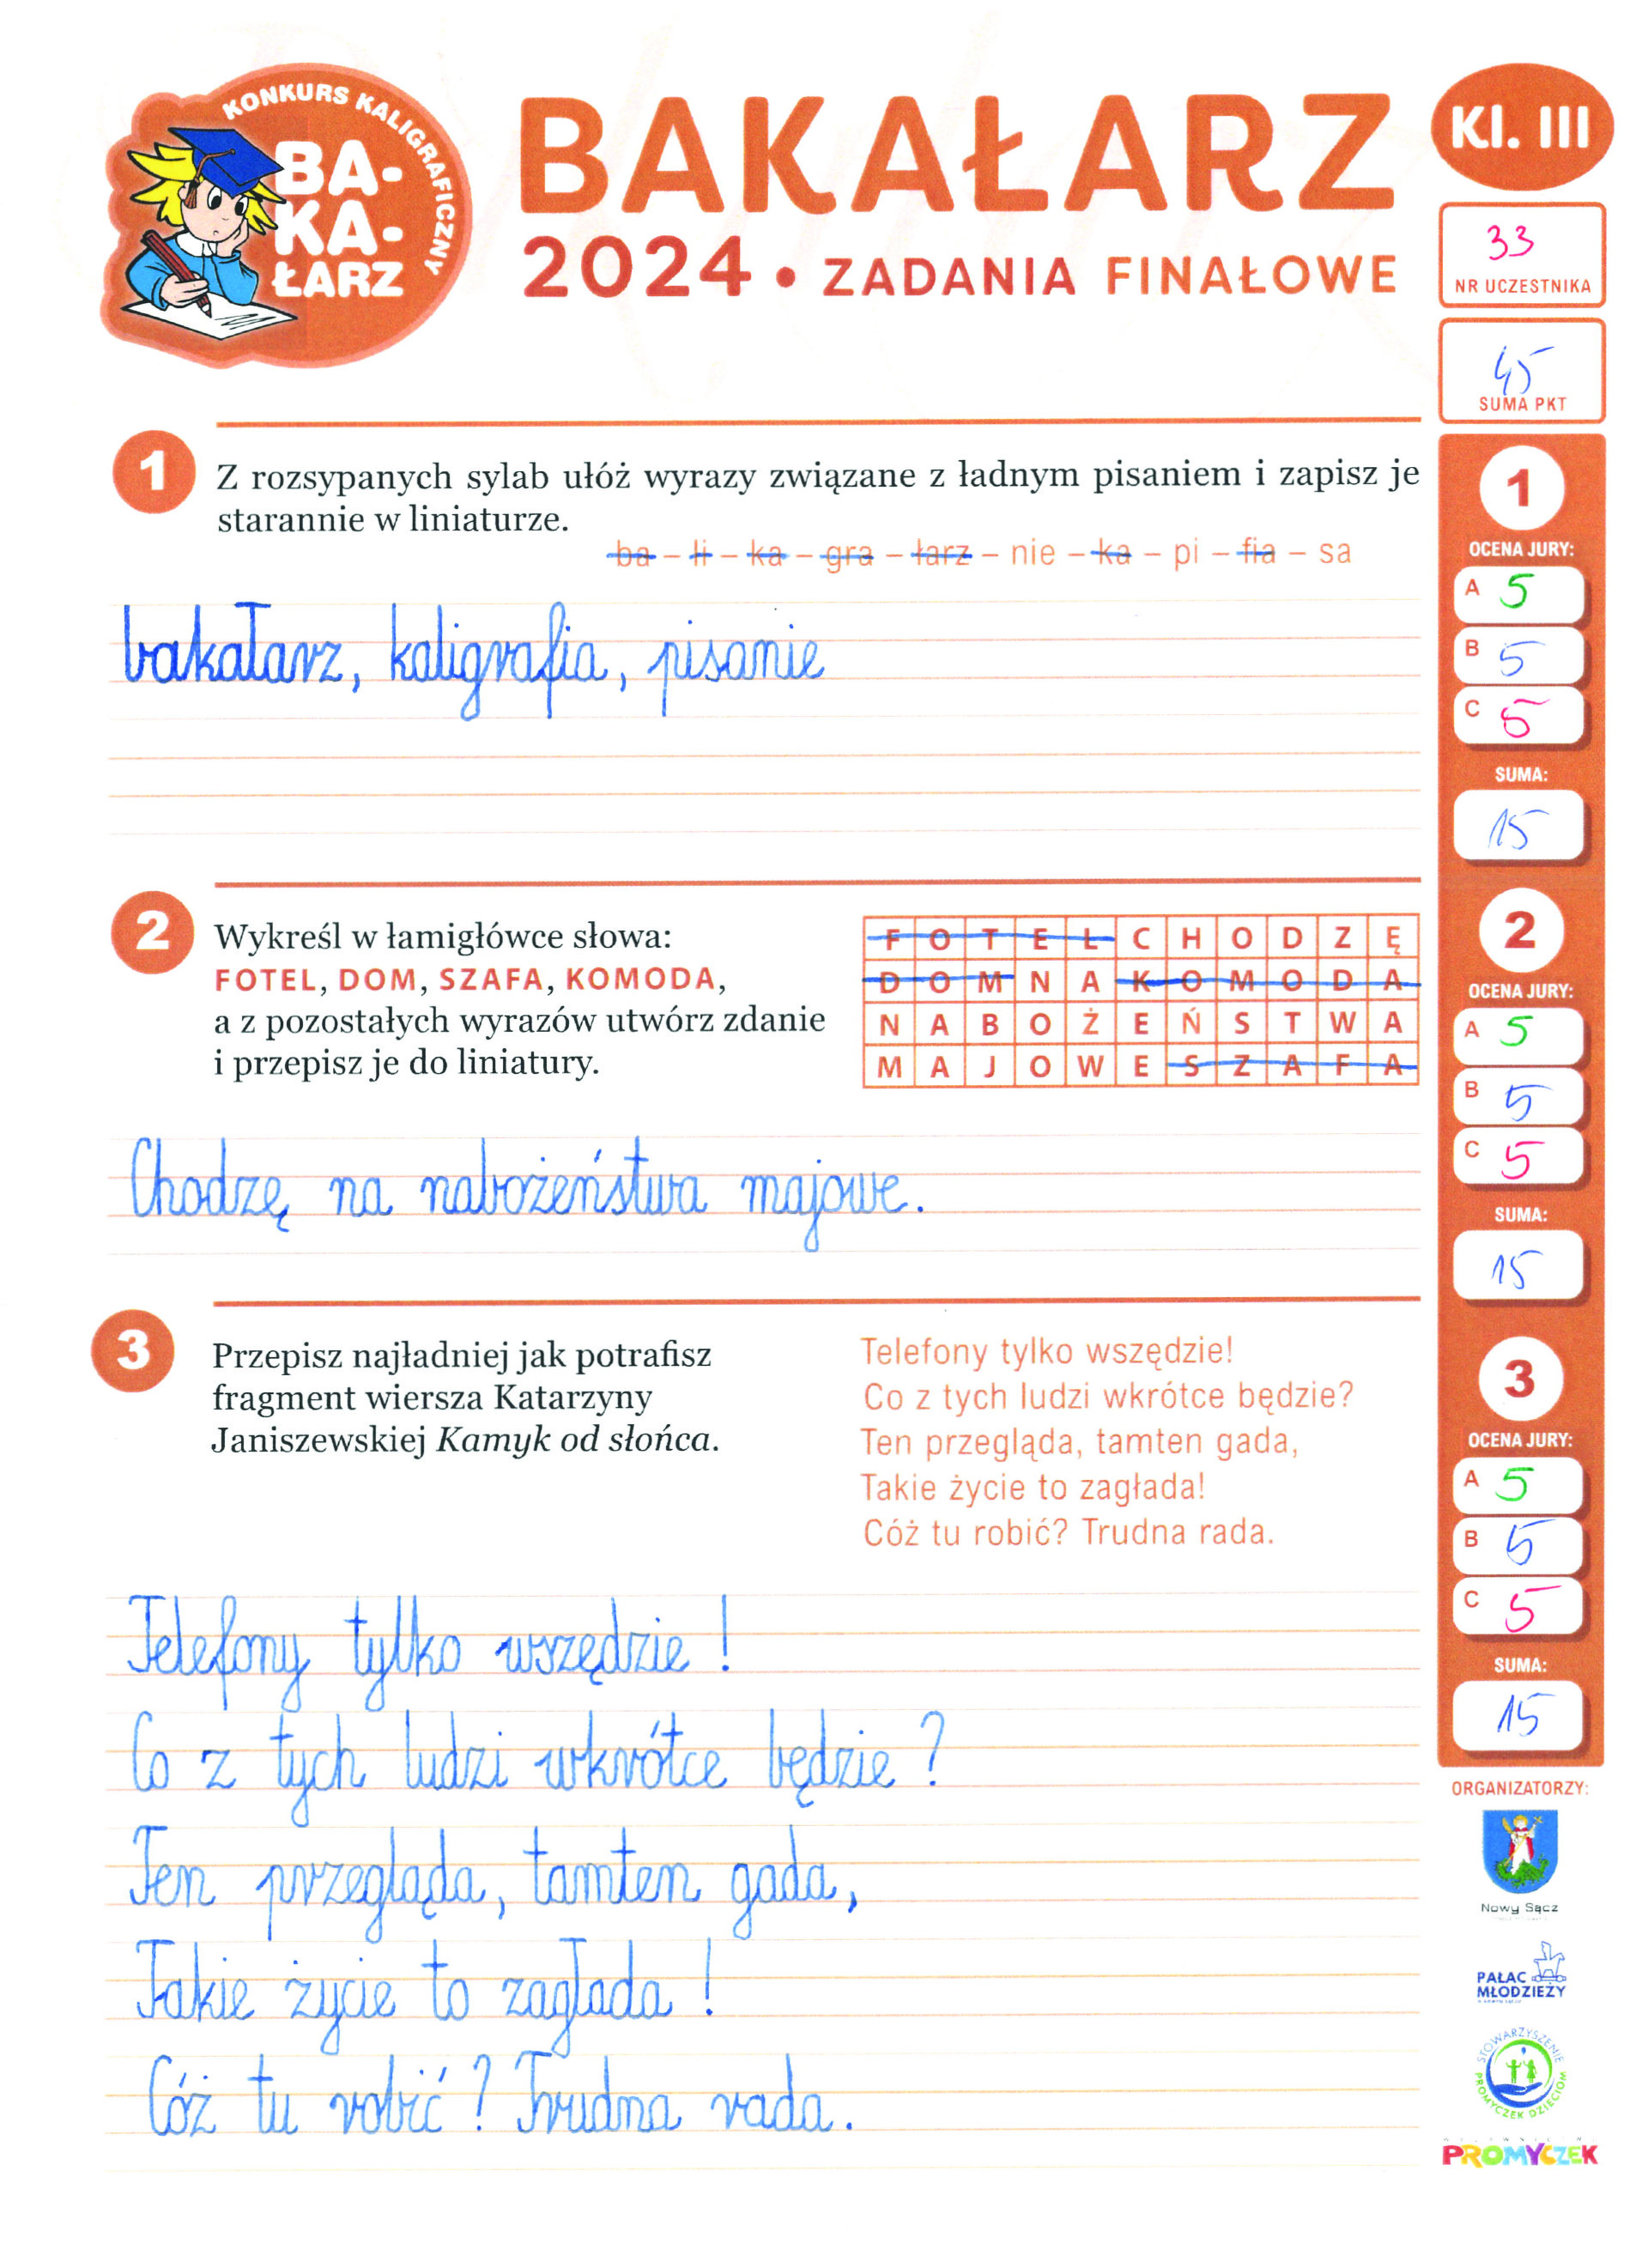 KONKURS KALIGRAFICZNY
BA-
KA-
ŁARZ
BAKAŁARZ
2024 • ZADANIA FINAŁOWE
Kl. III
33
NR UCZESTNIKA
45
SUMA PKT
1
Z rozsypanych sylab ułóż wyrazy związane z ładnym pisaniem i zapisz je
starannie w liniaturze.
ba – li – ka – gra – łarz – nie – ka – pi – fia – sa
bakałarz, kaligrafia, pisanie
1
OCENA JURY:
A 5
B 5
C 5
SUMA:
15
2
Wykreśl w łamigłówce słowa:
FOTEL, DOM, SZAFA, KOMODA,
a z pozostałych wyrazów utwórz zdanie
i przepisz je do liniatury.
F O T E L C H O D Z Ę
D O M N A K O M O D A
N A B O Ż E Ń S T W A
M A J O W E S Z A F A
Chodzę na nabożeństwa majowe.
2
OCENA JURY:
A 5
B 5
C 5
SUMA:
15
3
Przepisz najładniej jak potrafisz
fragment wiersza Katarzyny
Janiszewskiej Kamyk od słońca.
Telefony tylko wszędzie!
Co z tych ludzi wkrótce będzie?
Ten przegląda, tamten gada,
Takie życie to zagłada!
Cóż tu robić? Trudna rada.
Telefony tylko wszędzie!
Co z tych ludzi wkrótce będzie?
Ten przegląda, tamten gada,
Takie życie to zagłada!
Cóż tu robić? Trudna rada.
3
OCENA JURY:
A 5
B 5
C 5
SUMA:
15
ORGANIZATORZY:
Nowy Sącz
PAŁAC
MŁODZIEŻY
STOWARZYSZENIE
PROMYCZEK DZIECIOM
PROMYCZEK